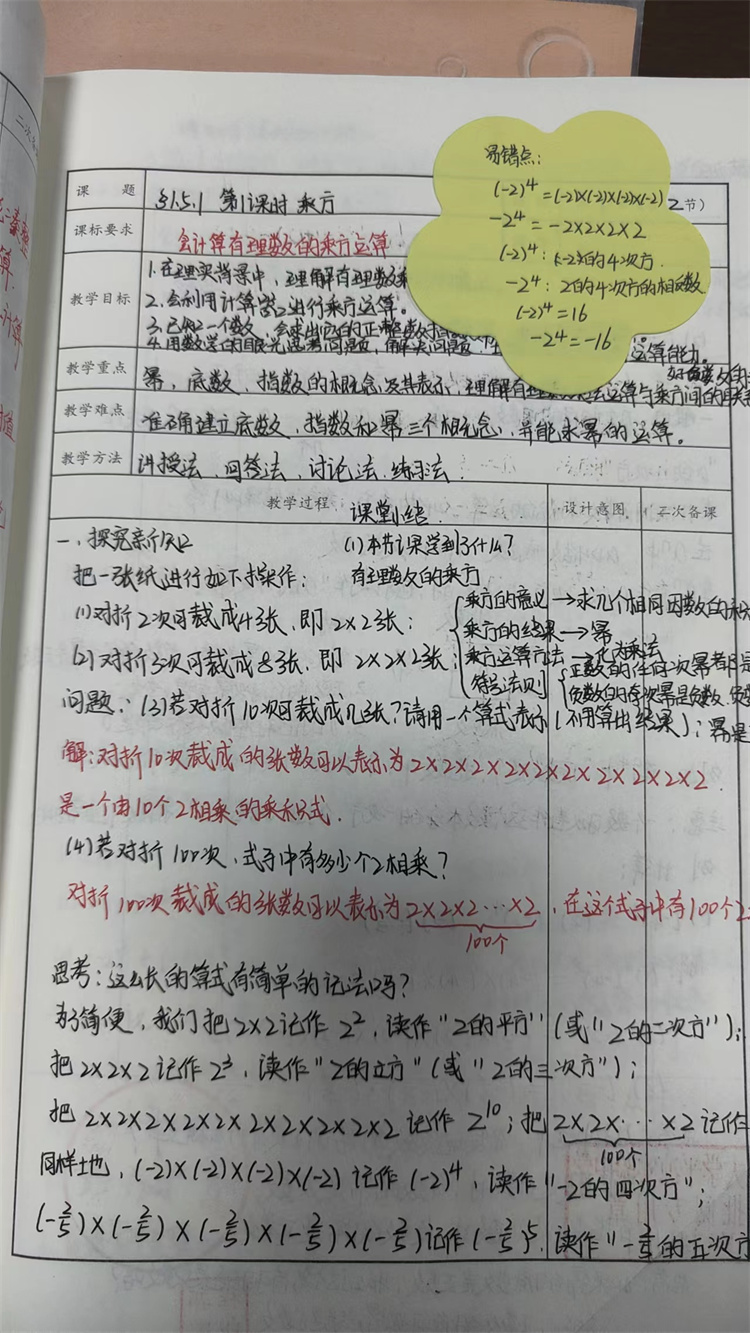 易错点：
(-2)⁴=(-2)×(-2)×(-2)×(-2)
-2⁴=-2×2×2×2
(-2)⁴：-2的4次方.
-2⁴：2的4次方的相反数.
(-2)⁴=16
-2⁴=-16
课 题 §1.5.1 第1课时 乘方 节）
课标要求 会计算有理数的乘方运算
教学目标 1.在现实背景中，理解有理数乘
2.会利用计算器进行乘方运算。
3.已知一个数，会求出它的正整数指数
4.用数学的眼光思考问题，解决问题 运算能力。
教学重点 幂，底数，指数的概念及其表示，理解有理 法运算与乘方间的
教学难点 准确建立底数，指数和幂三个概念，并能求幂的运算。
教学方法 讲授法、问答法，讨论法、练习法.
教学过程 课堂小结 设计意图 二次备课
一、探究新知 (1)本节课学到了什么？
把一张纸进行如下操作： 有理数的乘方
乘方的意义→求几个相同因数的
(1)对折2次可裁成4张，即2×2张；
乘方的结果→幂
(2)对折3次可裁成8张，即2×2×2张；
乘方运算方法→化为乘法
符号法则 正数的任何次幂都是
负数的奇次幂是负数，
问题：(3)若对折10次可裁成几张？请用一个算式表示(不用算出结果)；
解：对折10次裁成的张数可以表示为2×2×2×2×2×2×2×2×2×2.
是一个由10个2相乘的乘积式.
(4)若对折100次，式子中有多少个2相乘？
对折100次裁成的张数可以表示为2×2×2…×2，在这个式子中有100个2
100个
思考：这么长的算式有简单的记法吗？
为了简便，我们把2×2记作2²，读作“2的平方”(或“2的二次方”)；
把2×2×2记作2³，读作“2的立方”(或“2的三次方”)；
把2×2×2×2×2×2×2×2×2×2记作2¹⁰；把2×2×…×2记作
100个
同样地，(-2)×(-2)×(-2)×(-2)记作(-2)⁴，读作“-2的四次方”；
(-2/5)×(-2/5)×(-2/5)×(-2/5)×(-2/5)记作(-2/5)⁵.读作“-2/5的五次方